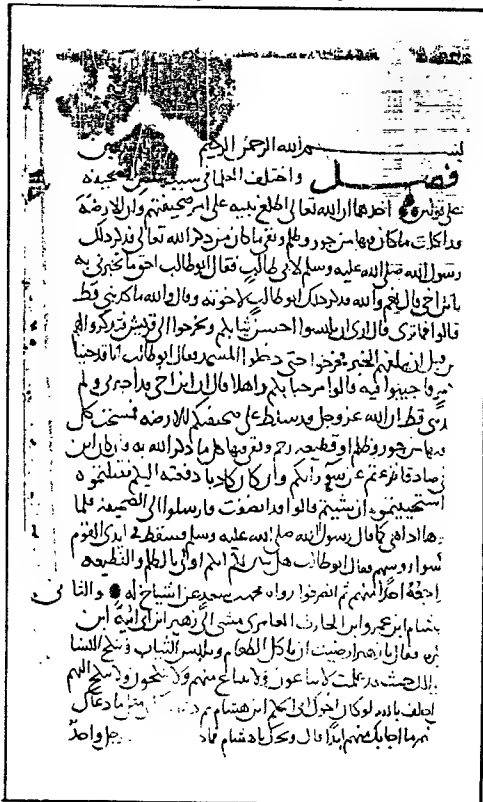 بسم الله الرحمن الرحيم
فصل واختلف العلما في سبب نقض الصحيفة
على قولين احدهما ان الله تعالى اطلع نبيه على امر صحيفتهم وان الارضة
قد اكلت ما كان فيها من جور وظلم وبقي ما كان من ذكر الله تعالى فذكر ذلك
رسول الله صلى الله عليه وسلم لابي طالب فقال ابو طالب احق ما تخبرني به
يا ابن اخي قال نعم والله فذكر ذلك ابو طالب لاخوته وقال والله ما كذبني قط
قالوا فما ترى قال ارى ان تلبسوا احسن ثيابكم وتخرجوا الى قريش فتذكروا لهم
من قبل ان يبلغهم الخبر فخرجوا حتى دخلوا المسجد فقال ابو طالب انا قد جئنا
فاجيبوا فيه قالوا مرحبا بكم واهلا قال ان ابن اخي قد اخبرني ولم
قط ان الله عز وجل قد سلط على صحيفتكم الارضة فمسحت كل
من جور وظلم او قطيعة رحم وبقي فيها كل ما ذكر الله به فان كان ابن
صادقا نزعتم عن سو رايكم وان كان كاذبا دفعته اليكم فقتلتموه
استحييتموه ان شيتم قالوا قد انصفت فارسلوا الى الصحيفة فلما
اذا هي كما قال رسول الله صلى الله عليه وسلم فسقط في ايدي القوم
روسهم فقال ابو طالب هل تبين لكم انكم اولى بالظلم والقطيعة
احد منهم ثم انصرفوا رواه محمد بن سعد عن اشياخ له والثاني
هشام ابن عمرو ابن الحارث العامري مشى الى زهير ابن ابي امية ابن
فقال يا زهير ارضيت ان تاكل الطعام وتلبس الثياب وتنكح النسا
حيث قد علمت لا يباعون ولا يبتاع منهم ولا ينكحون ولا ينكح اليهم
احلف بالله لو كان اخوال ابي الحكم ابن هشام ثم ما دعاك
ما اجابك منهم ابدا قال ويحك يا هشام رجل واحد